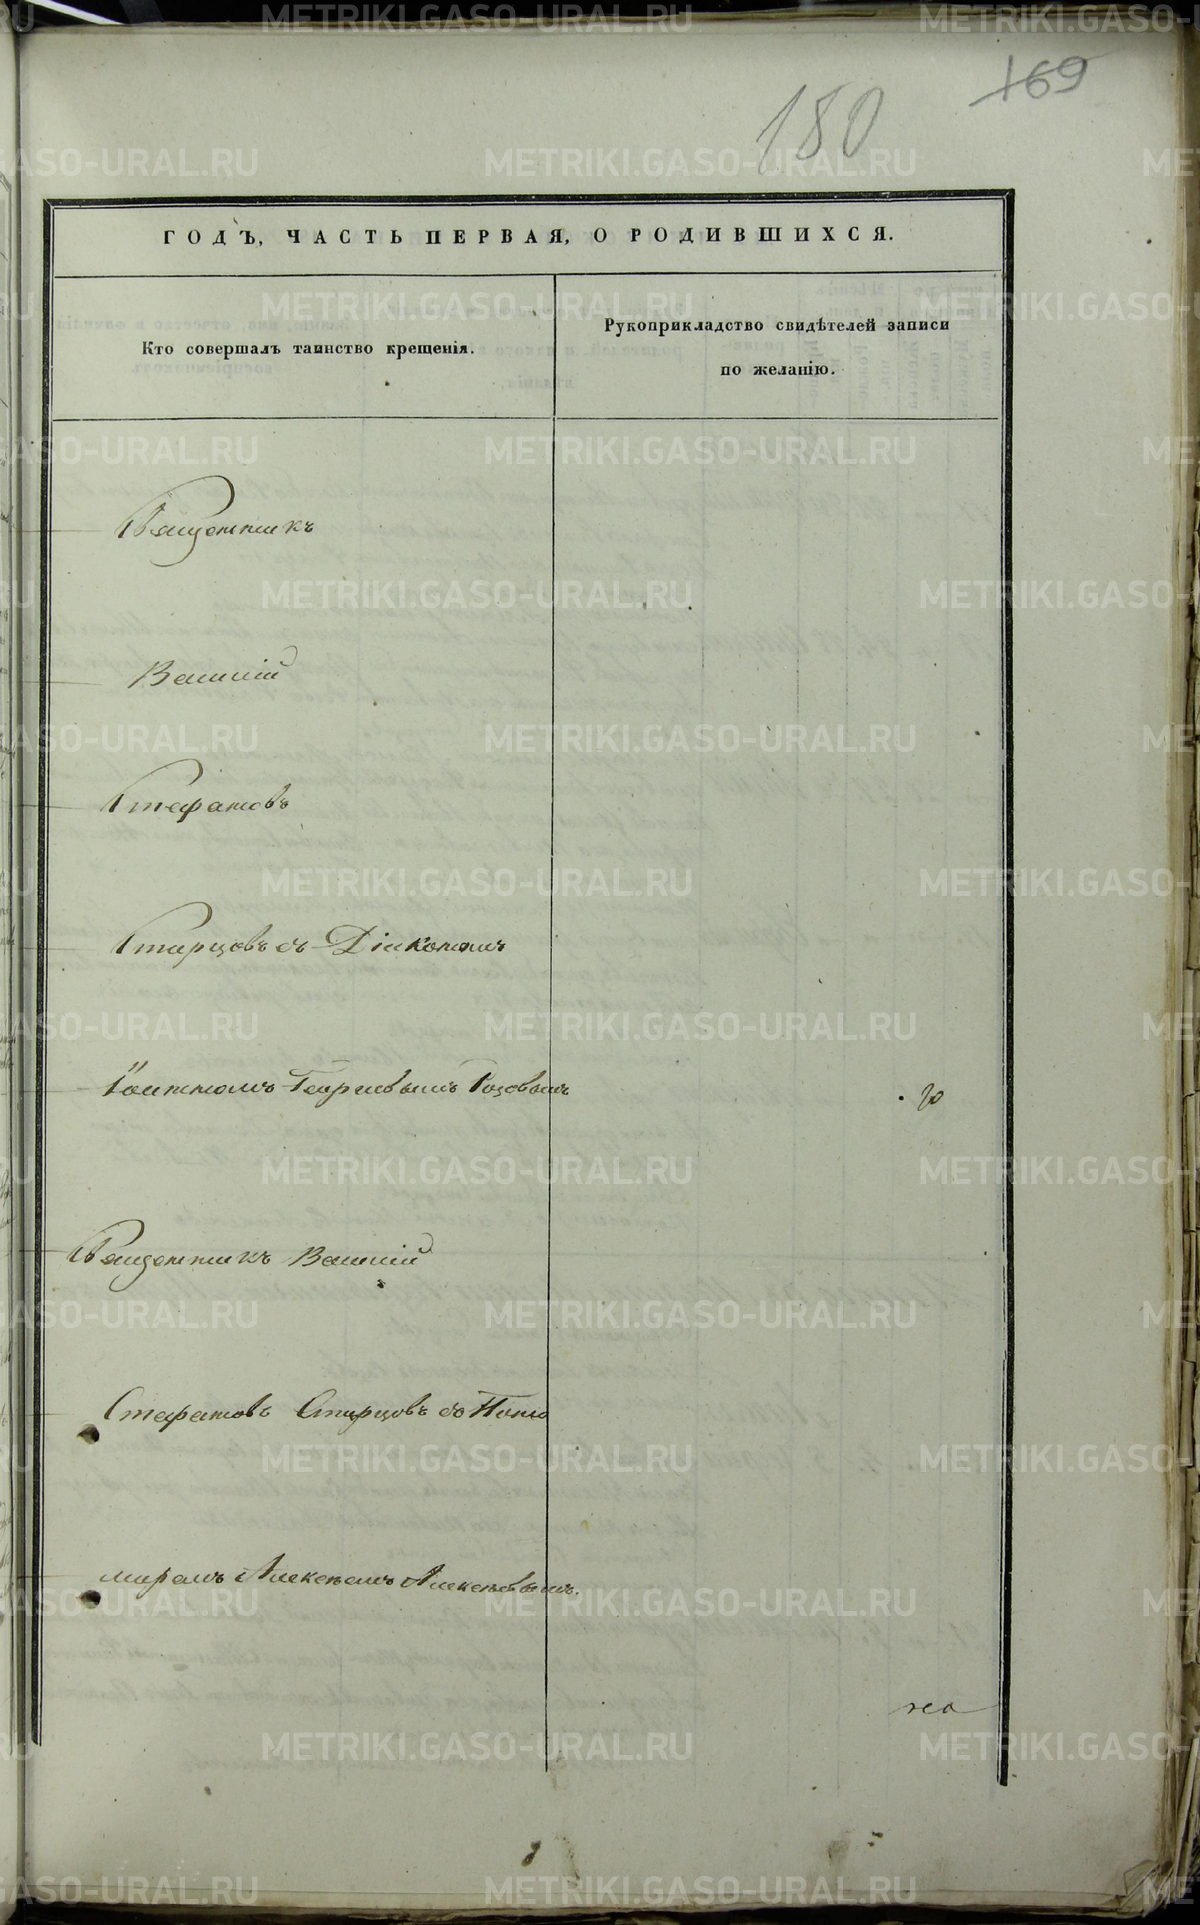 169
180
ГОДЪ, ЧАСТЬ ПЕРВАЯ, О РОДИВШИХСЯ.
Кто совершалъ таинство крещенія.
Рукоприкладство свидѣтелей записи
по желанію.
Священникъ
Василій
Стефановъ
Старцовъ съ Діакономъ
Іоанномъ Георгіевымъ
Священникъ Василій
Стефановъ Старцовъ съ Поно
маремъ Алексѣемъ Алексѣевымъ.
METRIKI.GASO-URAL.RU